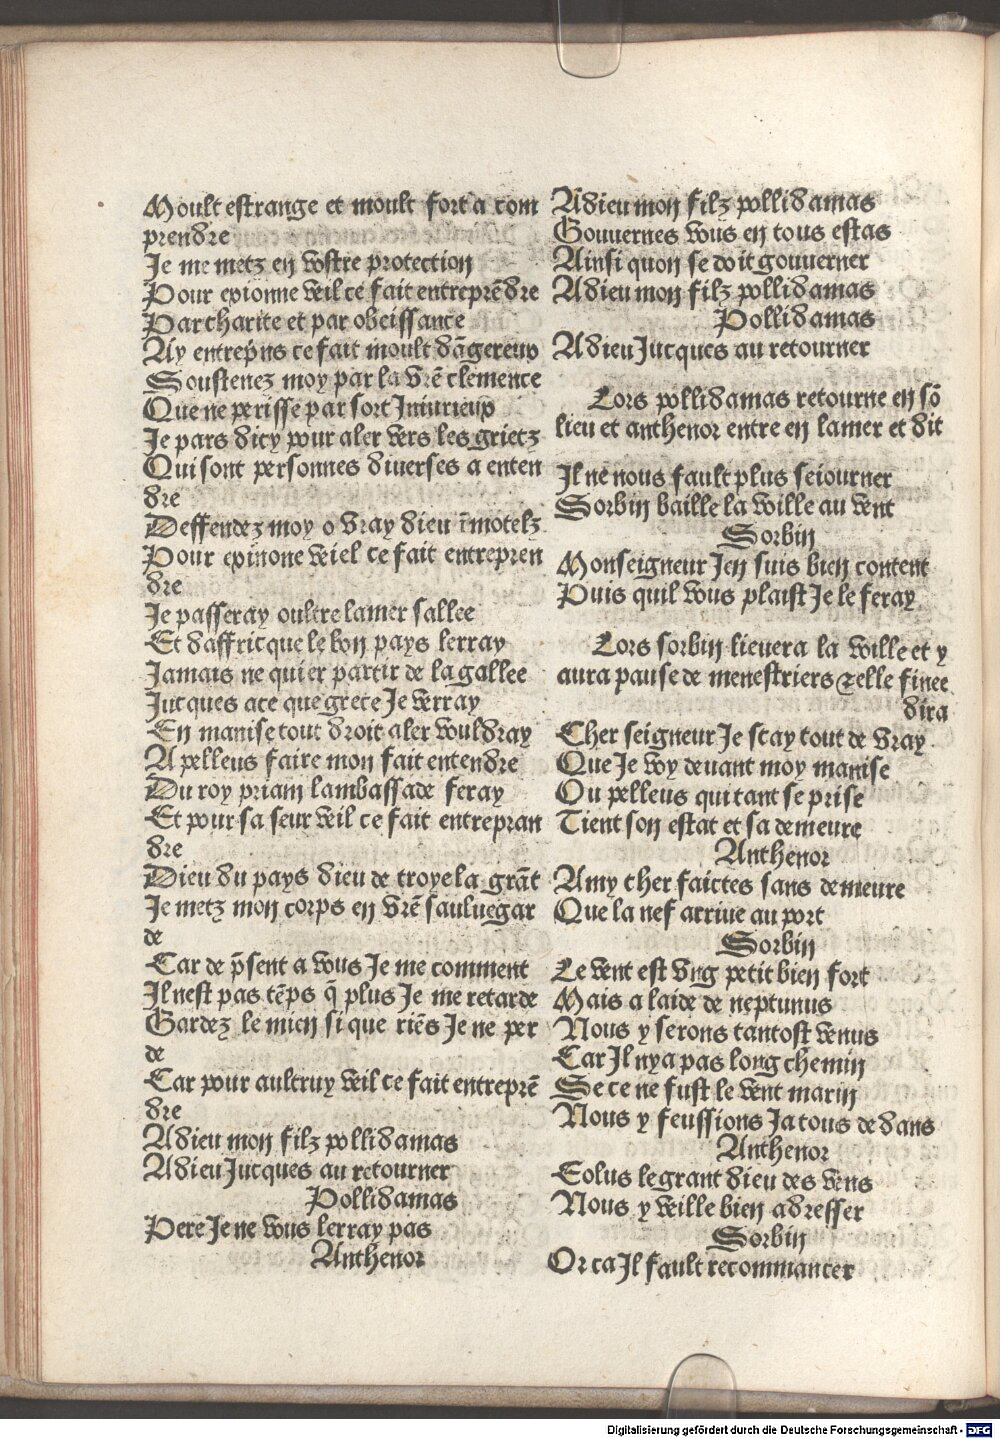 Moult estrange et moult fort a com
prendre
Je me metz en vostre protection
Pour exionne veil ce fait entreprēdre
Par charite et par obeissance
Ay entrep̄ns ce fait moult dāgereux
Soustenez moy par la vr̄e clemence
Que ne perisse par sort Iniurieux
Je pars dicy pour aler vers les grietz
Qui sont personnes diuerses a enten
dre
Deffendez moy o vray dieu īmotelz
Pour exinone veiel ce fait entrepren
dre
Je passeray oultre lamer sallee
Et daffricque le bon pays lerray
Jamais ne quier partir de la gallee
Jucques ace que grece Je verray
En manise tout droit aler vouldray
A pelleus faire mon fait entendre
Du roy priam lambassade feray
Et pour sa seur veil ce fait entrepran
dre
Dieu du pays dieu de troye la grāt
Je metz mon corps en vr̄e sauluegar
de
Car de p̄sent a vous Je me comment
Il nest pas tēps q̄ plus Je me retarde
Gardez le mien si que riēs Je ne per
de
Car pour aultruy veil ce fait entreprē
dre
Adieu mon filz pollidamas
Adieu Jucques au retourner
Pollidamas
Pere Je ne vous lerray pas
Anthenor
Adieu mon filz pollidamas
Gouuernes vous en tous estas
Ainsi quon se doit gouuerner
Adieu mon filz pollidamas
Pollidamas
Adieu Jucques au retourner
Lors pollidamas retourne en sō
lieu et anthenor entre en lamer et dit
Il ne nous fault plus seiourner
Sorbin baille la voille au vent
Sorbin
Monseigneur Jen suis bien content
Puis quil vous plaist Je le feray
Lors sorbin lieuera la voille et y
aura pause de menestriers ⁊ elle finee
dira
Cher seigneur Je scay tout de vray
Que Je voy deuant moy manise
Ou pelleus qui tant se prise
Tient son estat et sa demeure
Anthenor
Amy cher faictes sans demeure
Que la nef arriue au port
Sorbin
Le vent est vng petit bien fort
Mais a laide de neptunus
Nous y serons tantost venus
Car Il nya pas long chemin
Se ce ne fust le vent marin
Nous y feussions Ja tous dedans
Anthenor
Eolus le grant dieu des vens
Nous y veille bien adresser
Sorbin
Or ca Il fault recommancer
Digitalisierung gefördert durch die Deutsche Forschungsgemeinschaft - DFG